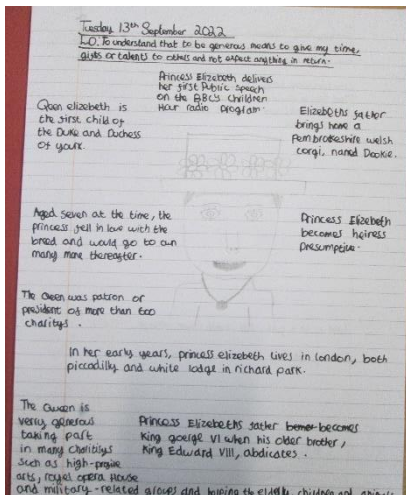 Tuesday 13th September 2022
L.O. To understand that to be generous means to give my time,
gifts or talents to others and not expect anything in return.
Princess Elizabeth delivers
her first Public speech
on the BBC's Children
Hour radio program.
Qeen elizabeth is
the first child of
the Duke and Duchess
of york.
Elizabeths father
brings home a
Pembrokeshire welsh
corgi, named Dookie.
Aged seven at the time, the
princess fell in love with the
breed and would go to own
many more thereafter.
Princess Elizabeth
becomes heiress
Presumptive.
The Qween was patron or
president of more than 600
charitys.
In her early years, princess elizabeth lives in london, both
piccadilly and white lodge in richard park.
The Queen is
verry generous
taking part
in many Charitiys
such as high-
arts, royel opera House
and military-related groups and helping the elderly, children and animals
Princess Elizabeths father becomes
King goerge VI when his older brother,
King Edward VIII, abdicates.